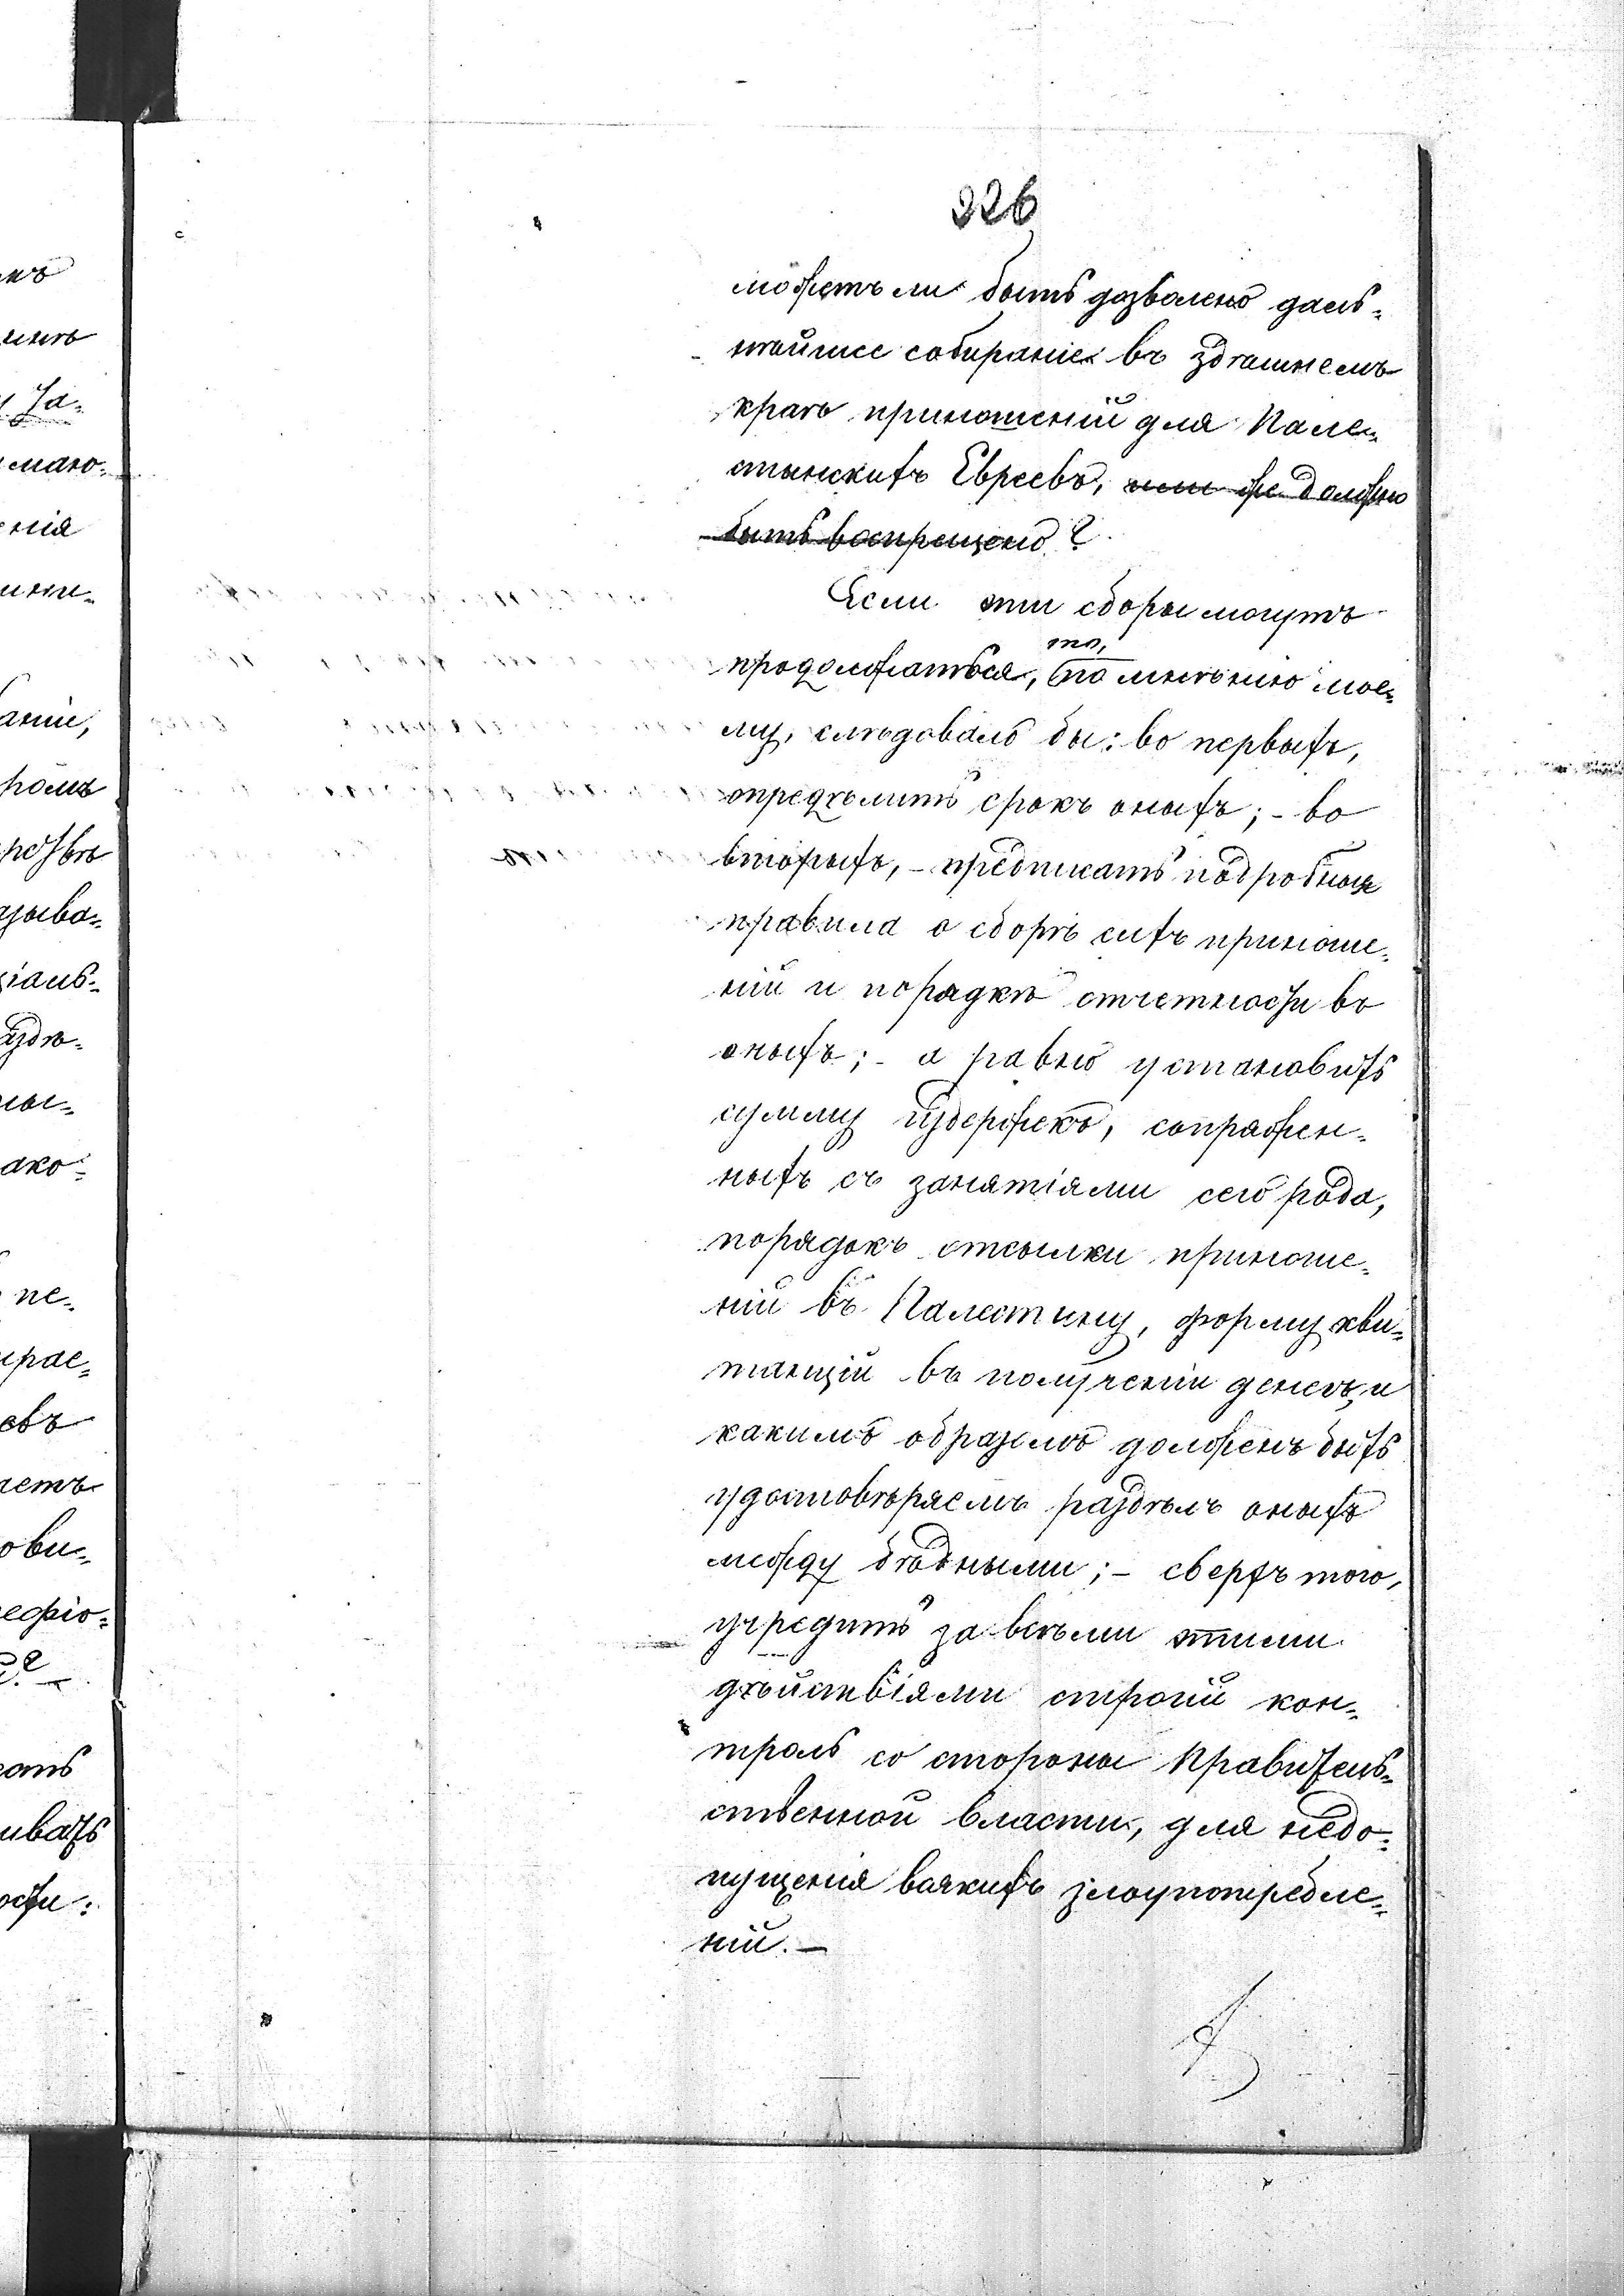 326
можетъ ли быть дозволено даль=
нѣйшее собираніе въ здѣшнемъ
краѣ приношеній для Пале=
стынскихъ Евреевъ, или же должно
быть воспрещено?
Если эти сборы могутъ
то,
продолжаться, по мнѣнію мое=
му, слѣдовало бы: во первыхъ,
опредѣлить срокъ оныхъ; - во
вторыхъ, - предписать подробныя
правила о сборѣ сихъ приноше=
ній и порядкѣ отчетности въ
оныхъ; - а равно установить
сумму издержекъ, сопряжен=
ныхъ съ занятіями сего рода,
порядокъ отсылки приноше=
ній въ Палестину, форму кви=
танцій въ полученіи денегъ, и
какимъ образомъ долженъ быть
удостовѣряемъ раздѣлъ оныхъ
между бѣдными; - сверхъ того,
учредить за всѣми этими
дѣйствіями строгій кон=
троль со стороны Правитель=
ственной власти, для недо=
пущенія всякихъ злоупотребле=
ній. -